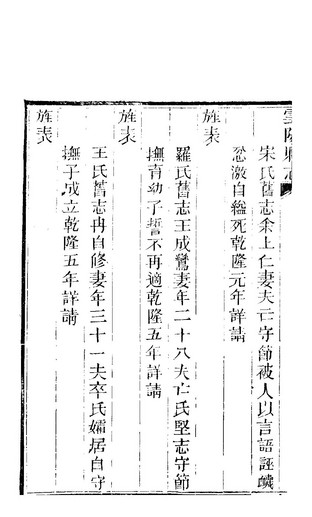 宋氏舊志余上仁妻夫亡守節被人以言語誣衊
忿激自縊死乾隆元年詳請
旌表
羅氏舊志王成鸞妻年二十八夫亡氏堅志守節
撫育幼子誓不再適乾隆五年詳請
旌表
王氏舊志冉自修妻年三十一夫卒氏孀居自守
撫子成立乾隆五年詳請
旌表